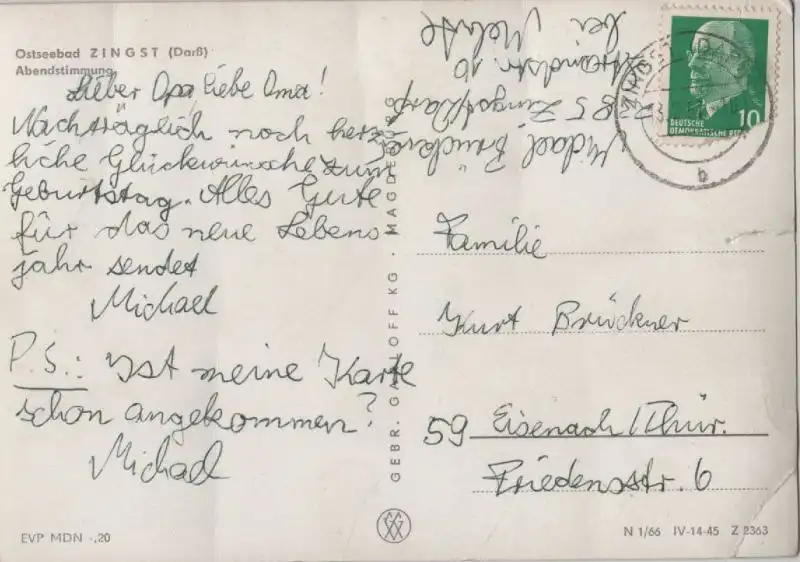 Ostseebad ZINGST (Darß)
Abendstimmung
Lieber Opa, liebe Oma!
Nachträglich noch herz-
liche Glückwünsche zum
Geburtstag. Alles Gute
für das neue Lebens-
jahr sendet
Michael
P.S.: Ist meine Karte
schon angekommen?
Michael
EVP MDN -,20
GEBR. GARLOFF KG · MAGDEBURG
Michael Brückner
2385 Zingst/Darß
Strandstr. 10
bei
DEUTSCHE
DEMOKRATISCHE REP
10
ZINGST (DARSS)
b
Familie
Kurt Brückner
59 Eisenach/Thür.
Friedensstr. 6
N 1/66 IV-14-45 Z 2363